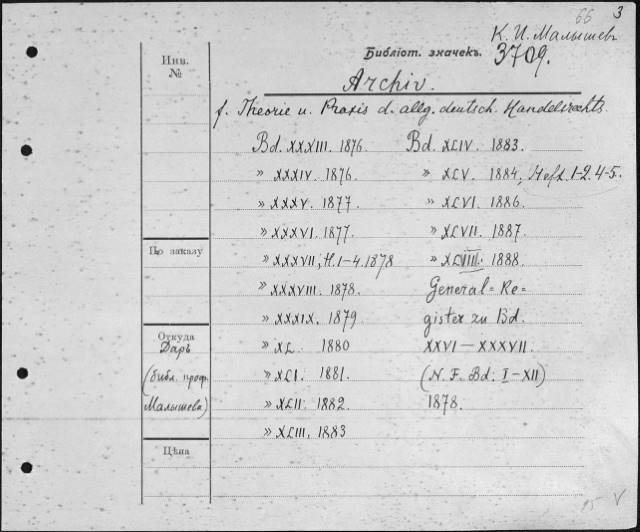 66 3
К. И. Малышевъ
Инв. №
Библіот. значекъ. 3709.
Archiv.
f. Theorie u. Praxis d. allg. deutsch. Handelsrechts.
Bd. XXXIII. 1876. Bd. XLIV. 1883.
" XXXIV. 1876. " XLV. 1884, Heft. 1-2. 4-5.
" XXXV. 1877 " XLVI. 1886.
" XXXVI. 1877. " XLVII. 1887.
По заказу
" XXXVII, H. 1-4. 1878 " XLVIII. 1888.
" XXXVIII. 1878. General=Re=
" XXXIX. 1879 gister zu Bd.
Откуда
Даръ
" XL 1880 XXVI—XXXVII.
(библ. проф.
" XLI. 1881. (N. F. Bd. I—XII)
Малышева)
" XLII. 1882. 1878.
" XLIII. 1883
Цѣна